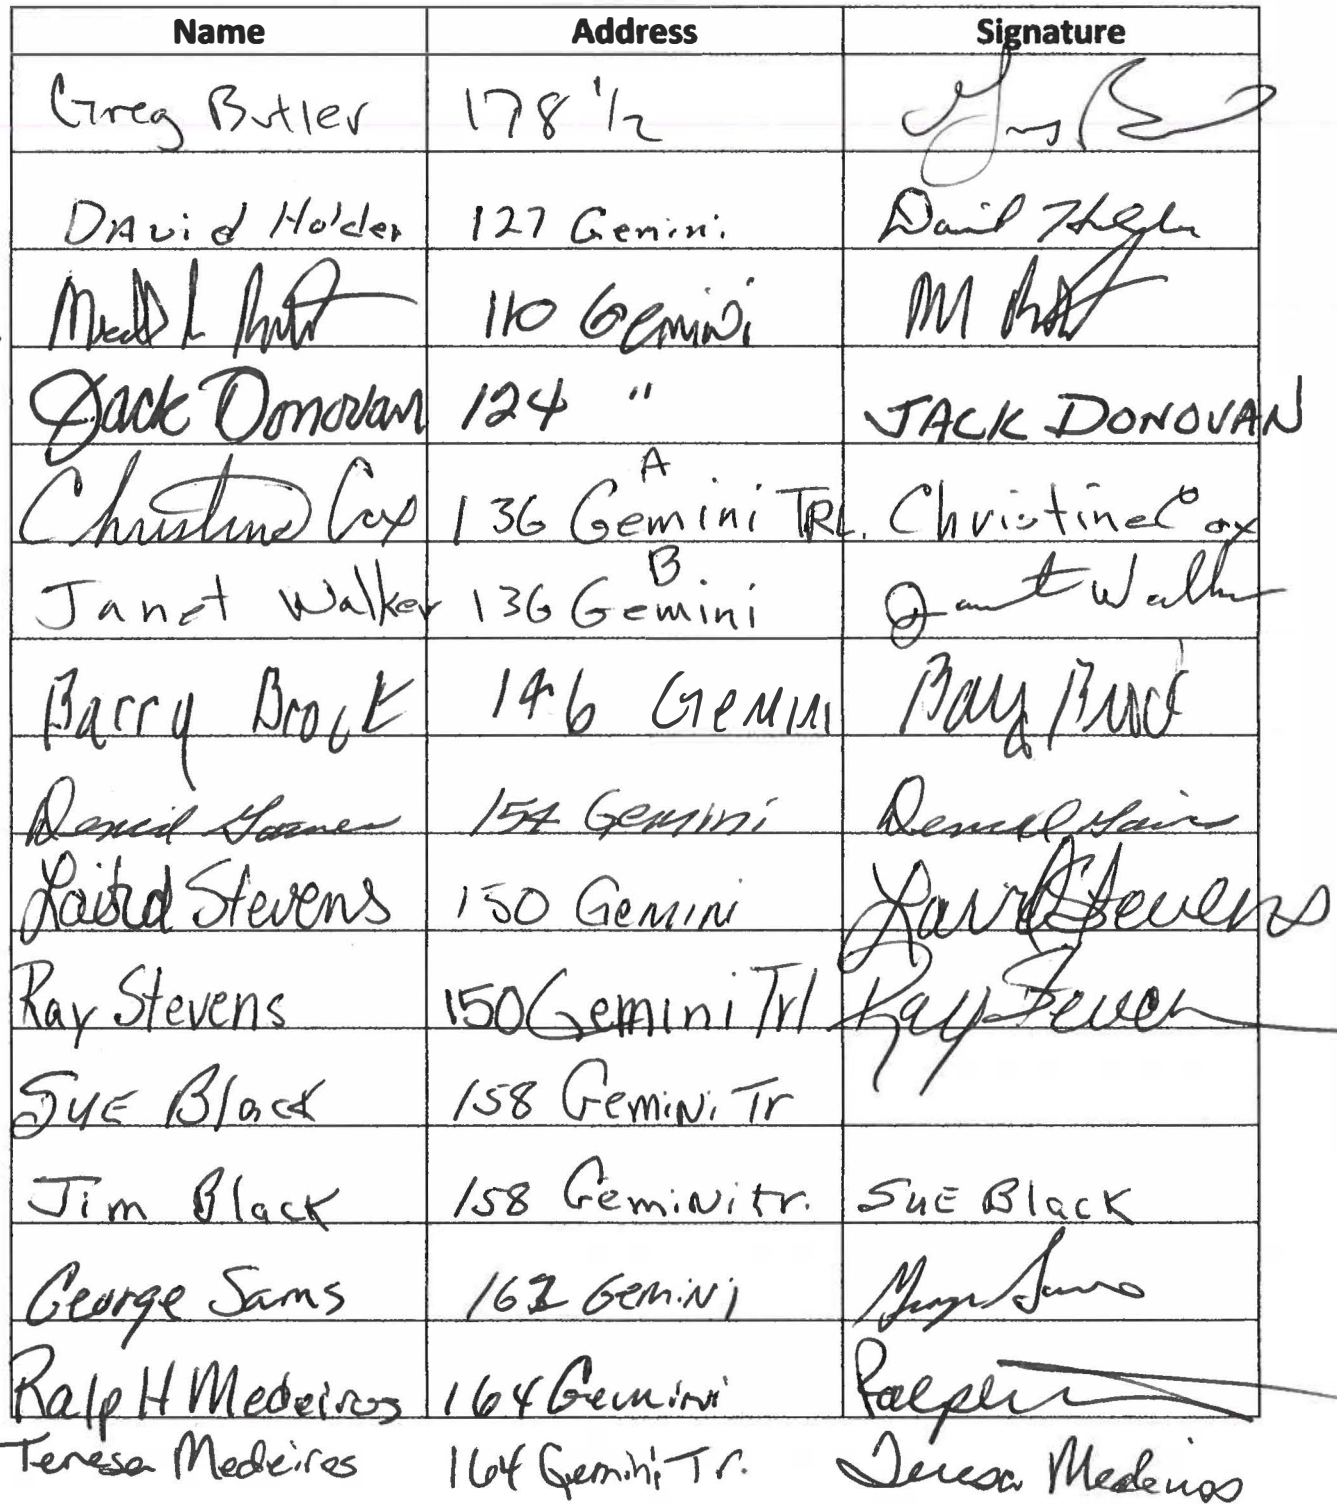 Name Address Signature
Greg Butler 178 1/2 Greg B
David Holder 127 Gemini David Holder
110 Gemini M
Jack Donovan 124 " JACK DONOVAN
Christine Cox 136 A Gemini TRL. Christine Cox
Janet Walker 136 B Gemini Janet Walker
Barry Brock 146 Gemini Barry Brock
154 Gemini
Laird Stevens 150 Gemini Laird Stevens
Ray Stevens 150 Gemini Trl Ray Steven
SuE Black 158 Gemini Tr
Jim Black 158 Gemini tr. SuE Black
George Sams 162 Gemini George Sams
Ralp H Medeiros 164 Gemini Ralph
Teresa Medeiros 164 Gemini Tr. Teresa Medeiros